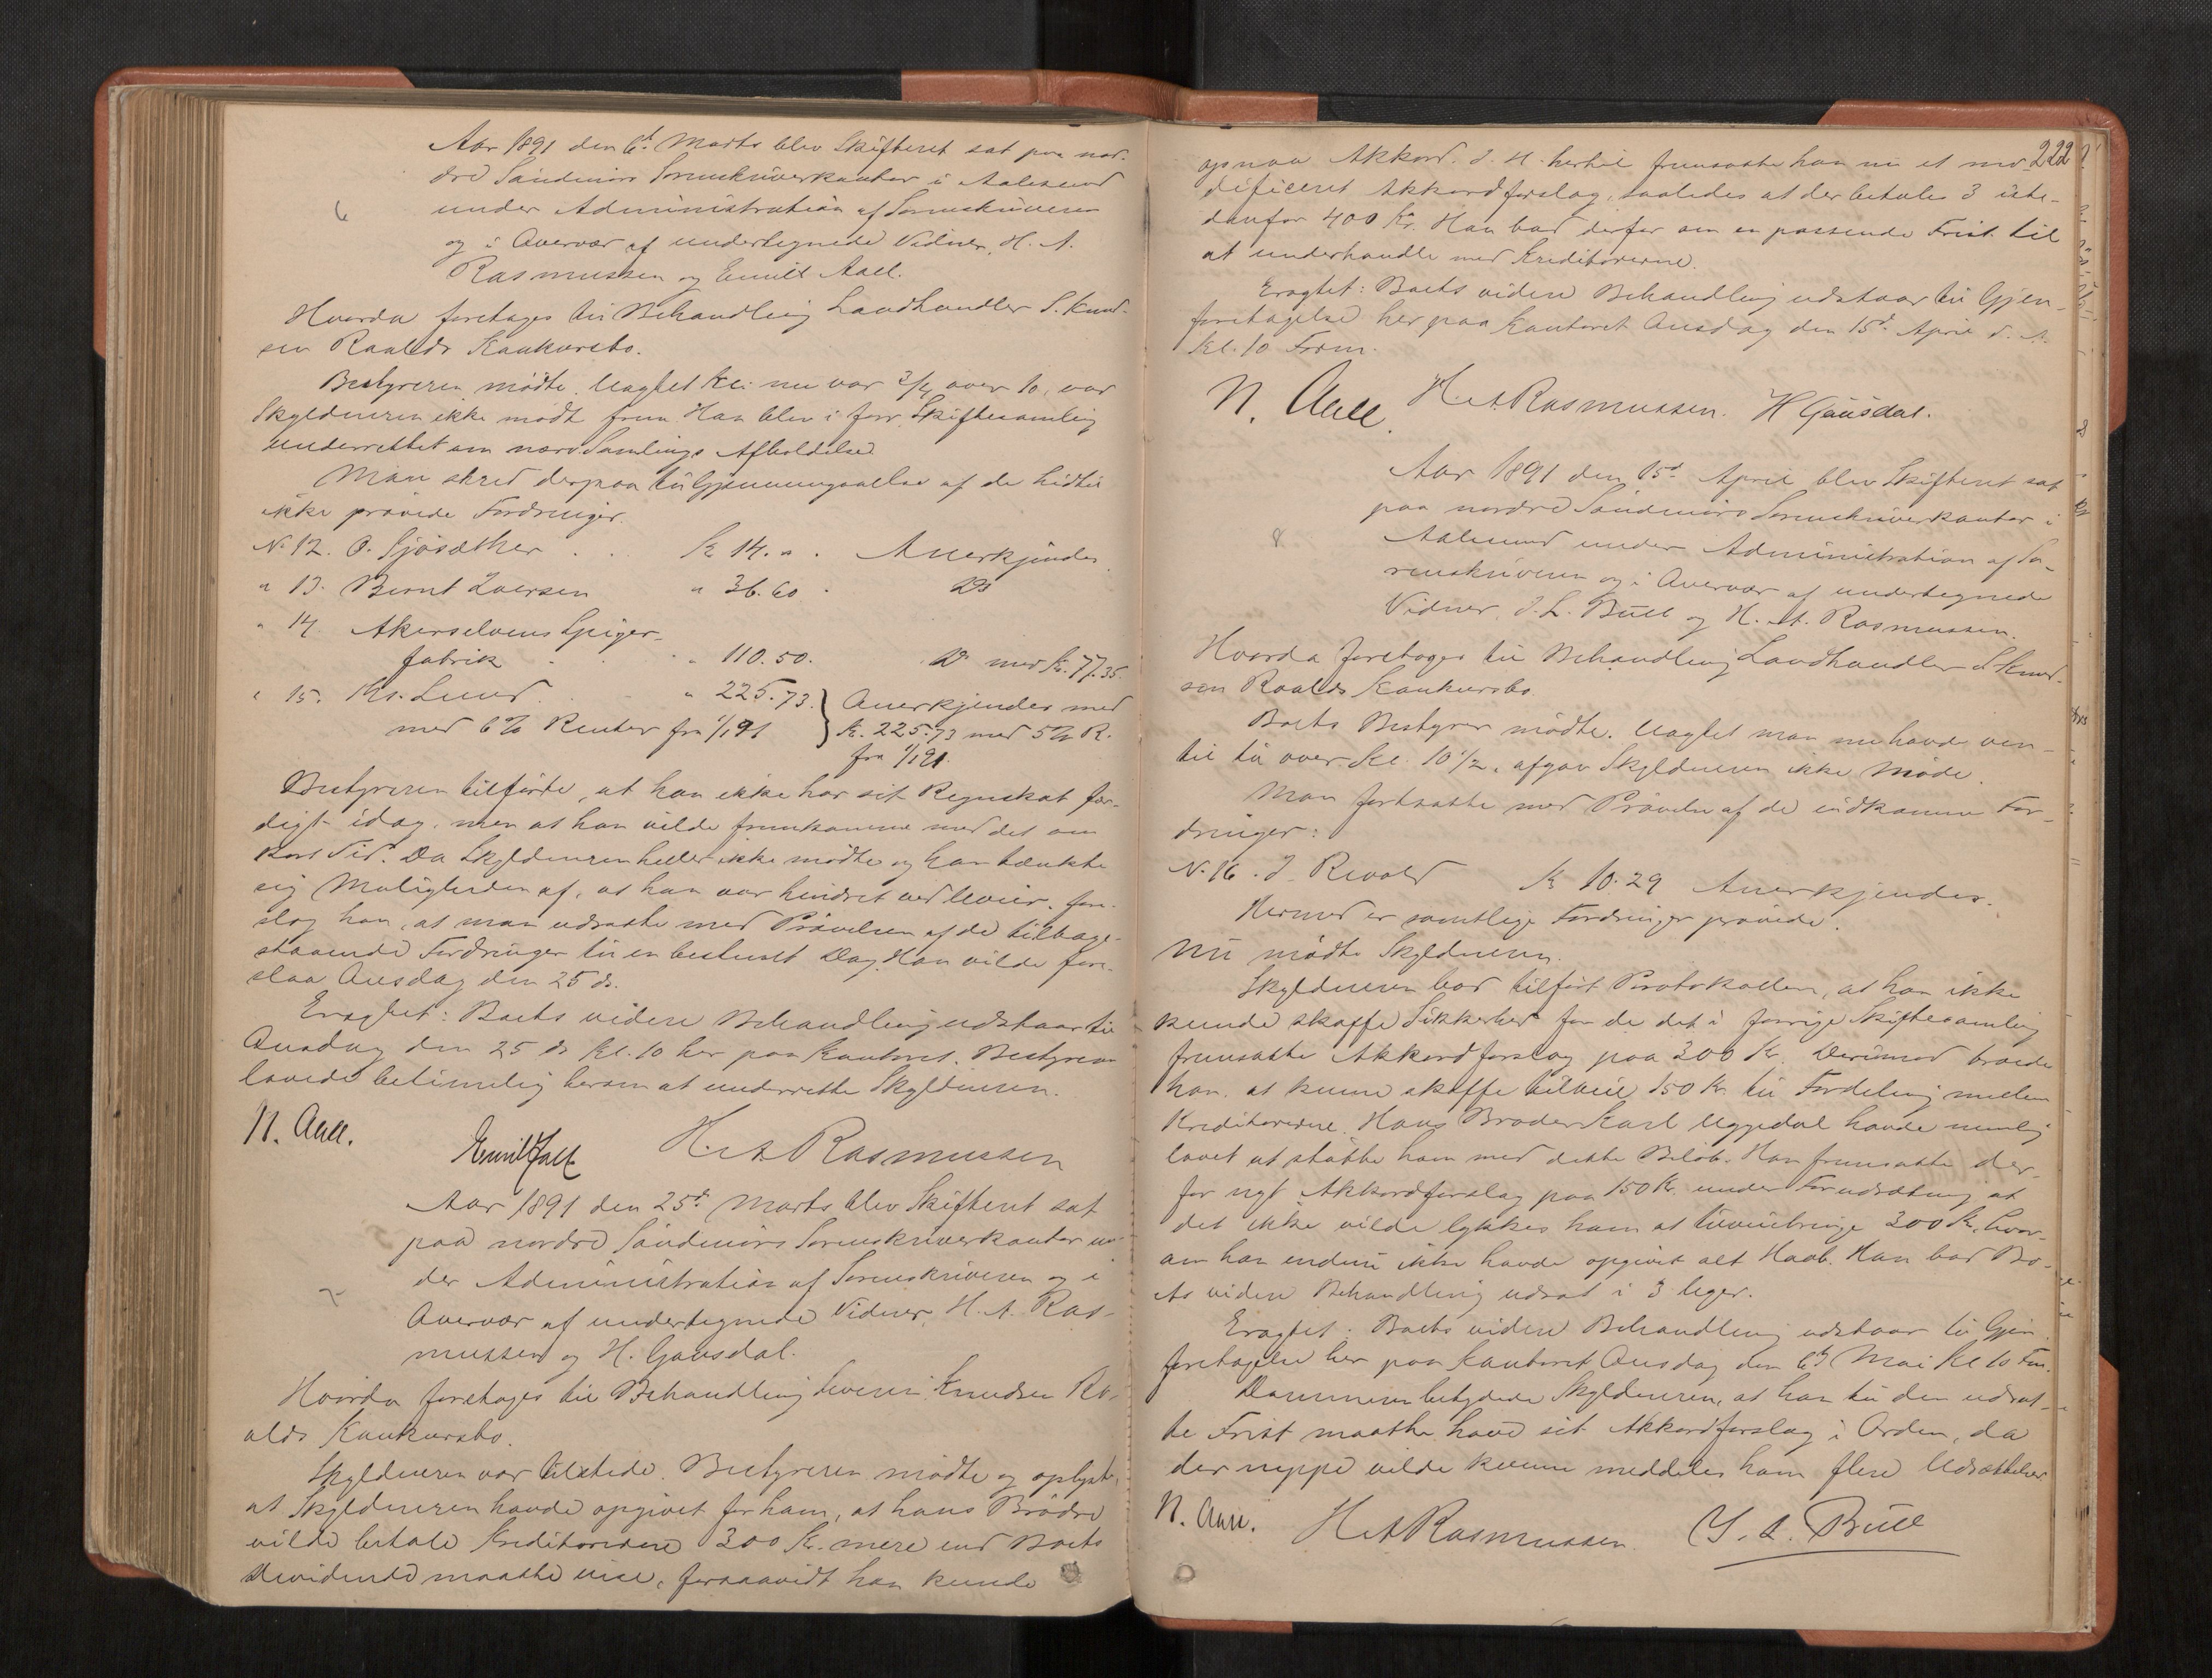 Aar 1891 den 6te Marts blev Skifteret sat paa nor-
dre Søndmørs Sorenskriverkontor i Aalesund
6
under Administration af Sorenskriveren
og i Overvær af undertegnede Vidner, H. A.
Rasmussen og Emill Aall.
Hvorda foretages til Behandling Landhandler S. Knud-
sen Roalds Konkursbo.
Bestyreren mødte. Uagtet Kl. nu var 3/4 over 10, var
Skyldneren ikke mødt frem. Han blev i forr. Skiftesamling
underrettet om nærv. Samlings Afholdelse.
Man skred derpaa til Gjennemgaaelse af de hidtil
ikke prøvede Fordringer.
No 12. O. Gjøsæther . . Kr 14. " . Anerkjendes.
" 13. Bernt Iversen " 36.60 . Do
" 14. Akerselvens Spiger-
fabrik . . " 110.50. Do med Kr. 77.35.
" 15. Ks. Lund . . " 225.73. } Anerkjendes med
med 6% Renter fra 1/1 91 Kr. 225.73 med 5% R.
fra 1/1 91.
Bestyreren tilførte, at han ikke har sit Regnskab fær-
digt idag, men at han vilde fremkomme med det om
kort Tid. Da Skyldneren heller ikke mødte og han tænkte
sig Muligheden af, at han var hindret ved Uveir, fore-
slog han, at man udsatte med Prøvelsen af de tilbage-
staaende Fordringer til en bestemt Dag. Han vilde fore-
slaa Onsdag den 25 ds.
Eragtet: Boets videre Behandling udstaar til
Onsdag den 25 ds Kl. 10 her paa Kontoret. Bestyreren
lovede betimelig herom at underrette Skyldneren.
N. Aall.
Emill Aall H. A. Rasmussen
Aar 1891 den 25de Marts blev Skifteret sat
paa nordre Søndmørs Sorenskriverkontor un-
der Administration af Sorenskriveren og i
7
Overvær af undertegnede Vidner, H. A. Ras-
mussen og H. Gausdal.
Hvorda foretages til Behandling Severin Knudsen Ro-
alds Konkursbo.
Skyldneren var tilstede. Bestyreren mødte og oplyste,
at Skyldneren havde opgivet for ham, at hans Brødre
vilde betale Kreditorerne 300 Kr. mere end Boets
Dividende maatte vise, forsaavidt han kunde
222
opnaa Akkord. I H. hertil fremsatte han nu et mo-
dificeret Akkordforslag, saaledes at der betales 3 iste-
danfor 400 Kr. Han bad derfor om en passende Frist til
at underhandle med Kreditorerne.
Eragtet: Boets videre Behandling udstaar til Gjen-
foretagelse her paa Kontoret Onsdag den 15de April d. A.
Kl. 10 Form.
N. Aall. H. A. Rasmussen. H Gausdal.
Aar 1891 den 15de April blev Skifteret sat
paa nordre Søndmørs Sorenskriverkontor i
8
Aalesund under Administration af So-
renskriveren og i Overvær af undertegnede
Vidner, J. L. Bull og H. A. Rasmussen.
Hvorda foretages til Behandling Landhandler S Knud-
sen Roalds Konkursbo.
Boets Bestyrer mødte. Uagtet man nu havde ven-
tet til over Kl. 10 1/2, afgav Skyldneren ikke Møde.
Man fortsatte med Prøvelsen af de indkomne For-
dringer:
No 16. J. Rivold Kr 10.29 Anerkjendes.
Hermed er samtlige Fordringer prøvede.
Nu mødte Skyldneren.
Skyldneren bad tilført Protokollen, at han ikke
kunde skaffe Sikkerhed for de det i forrige Skiftesamling
fremsatte Akkordforslag paa 300 Kr. Derimod troede
han at kunne skaffe tilveie 150 Kr. til Fordeling mellem
Kreditorerne. Hans Broder Karl Uggedal havde nemlig
lovet at støtte ham med dette Beløb. Han fremsatte der-
for nyt Akkordforslag paa 150 Kr. under Forudsætning at
det ikke vilde lykkes ham at tilveiebringe 300 Kr., hvor-
om han endnu ikke havde opgivet alt Haab. Han bad Bo-
ets videre Behandling udsat i 3 Uger.
Eragtet: Boets videre Behandling udstaar til Gjen-
foretagelse her paa Kontoret Onsdag den 6te Mai Kl 10 Fm.
Dommeren betydede Skyldneren, at han til den udsat-
te Frist maatte have sit Akkordforslag i Orden, da
der neppe vilde kunne meddeles ham flere Udsættelser.
N. Aall. H. A. Rasmussen. J. L. Bull